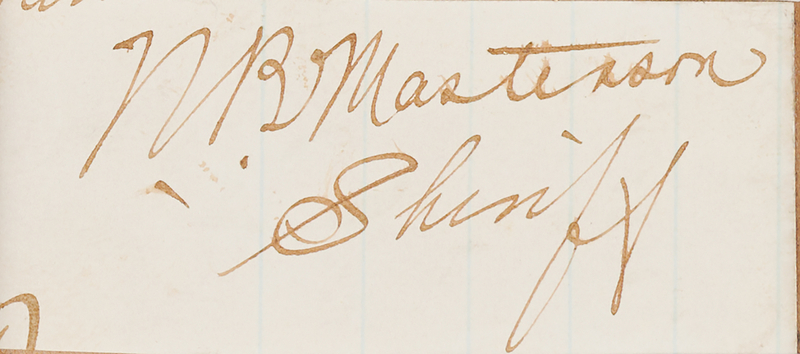 W B Masterson
Sheriff